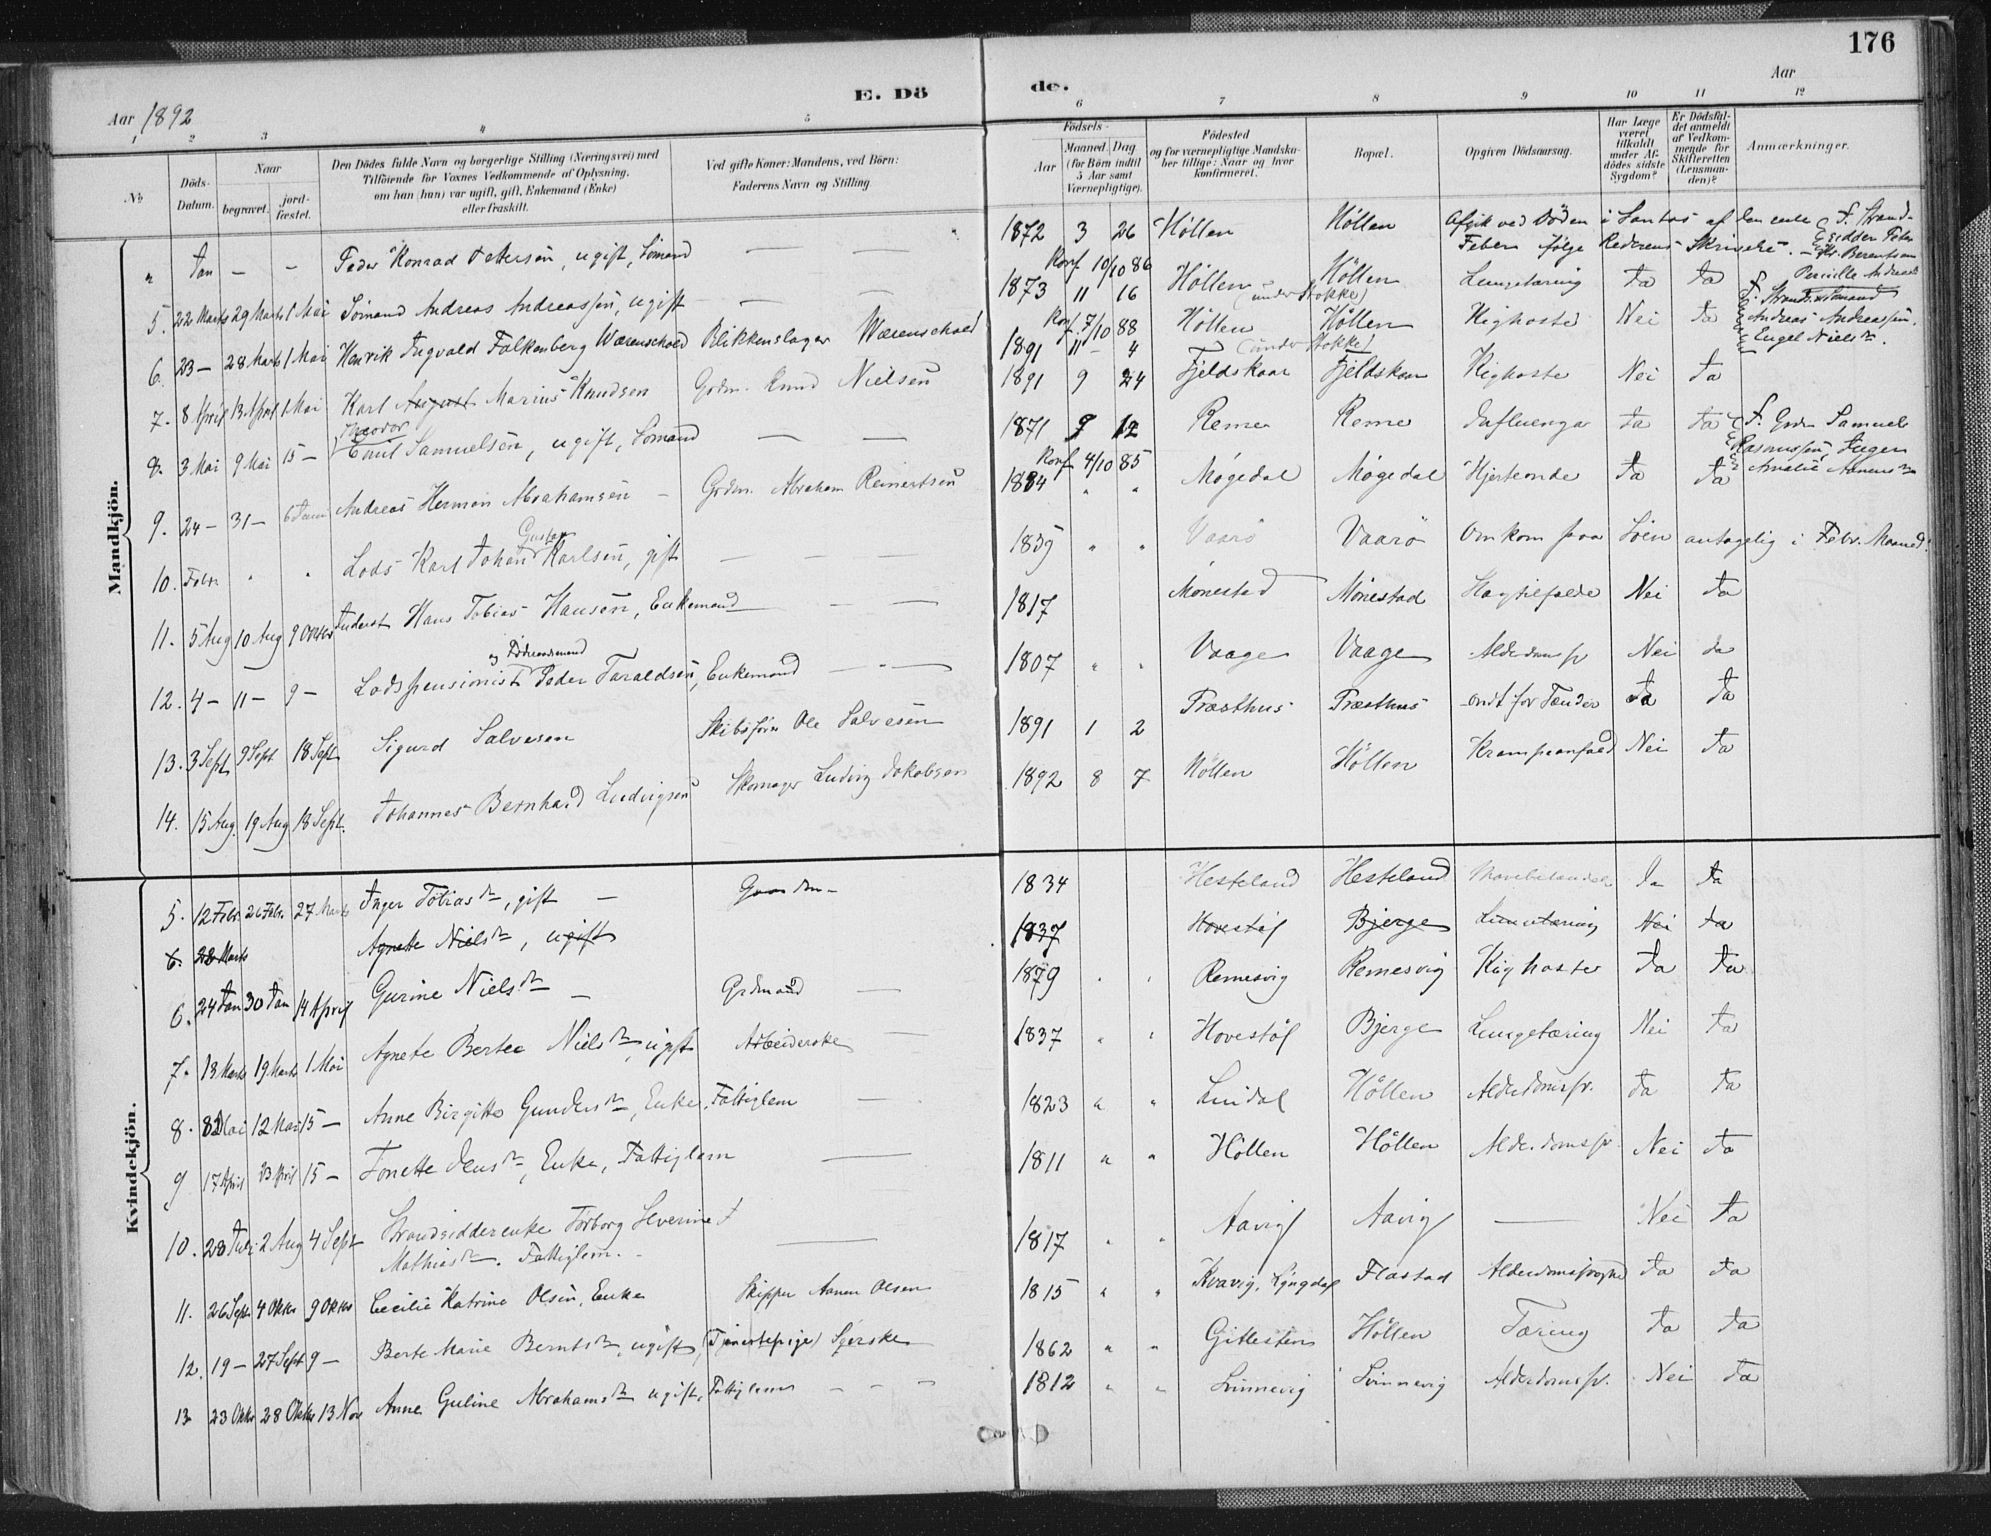 176
E. Dö
de.
Aar 1892
Aar
1 2 3 4 5 6 7 8 9 10 11 12
No
Döds-Datum.
Naar
begravet.
jordfæstet.
Den Dödes fulde Navn og borgerlige Stilling (Næringsvei) med
Tilföiende for Voxnes Vedkommende af Oplysning,
om han (hun) var ugift, gift, Enkemand (Enke)
eller fraskilt.
Ved gifte Koner: Mandens, ved Börn:
Faderens Navn og Stilling
Födsels-
Aar
Maaned. Dag
(for Börn indtil
5 Aar samt
Værnepligtige).
Födested
og for værnepligtige Mandska-
ber tillige: Naar og hvor
konfirmeret.
Bopæl.
Opgiven Dödsaarsag.
Har Læge
været
tilkaldt
under Af-
dödes sidste
Sygdom?
Er Dödsfal-
det anmeldt
af Vedkom-
mende for
Skifteretten
(Lensman-
den)?
Anmærkninger.
Mandkjön.
" Jan — — Peder Konrad Pettersen, ugift, Sömand — — 1872 3 26 Höllen Höllen Afgik ved Döden i Santos af den gule Feber ifølge Rederens Skrivelse.
Konf 10/10 86
5. 22 Marts 29 Marts 1 Mai Sömand Andreas Andreassen, ugift — — 1873 11 16 Höllen (under Stokke) Höllen Lungetæring Ja Ja F. Strands. Sömand Andreas Andreassen, Engel Nielsdr.
Konf 7/10 88
6. 23 — 28 Marts 1 Mai Henrik Ingvald Falkenberg Wærenschold Blikkenslager Wærenschold 1891 11 4 Höllen (under Stokke) Höllen Kighoste Nei Ja
7. 8 April 13 April 1 Mai Karl August Marius Knudsen Grdm. Knud Nielsen 1891 9 24 Fjeldskaar Fjeldskaar Kighoste Nei Ja
Theodor
8. 3 Mai 9 Mai 15 — Emil Samuelsen, ugift, Sömand — — 1871 9 12 Reme Reme Influenza Ja Ja F. Grdm Samuel Rasmussen, Inger Amalie Aanensdr
Konf 4/10 85
9. 24 — 31 — 6 Juni Andreas Herman Abrahamsen — Grdm. Abraham Reinertsen 1884 " " Mögedal Mögedal Hjerteonde Ja Ja
Gustav
10. Febr. " " Lods Karl Johan Karlsen, gift — — 1839 " " Vaarö Vaarö Omkom paa Söen antagelig i Febr. Maaned.
11. 5 Aug 10 Aug 9 Oktbr Inderst Hans Tobias Hansen, Enkemand — — 1817 Mönestad Mönestad Slagtilfælde Nei Ja
12. 4 — 11 — 9 — Lodspensionist Peder Taraldsen, Enkemand — — 1807 " " Vaage Vaage Alderdomssv Nei Ja
13. 3 Sept 9 Sept 18 Sept Sigurd Salvesen Skibsförer Ole Salvesen 1891 1 2 Præsthus Præsthus ondt for Tænder Ja Ja
14. 15 Aug. 19 Aug 18 Sept. Johannes Bernhard Ludvigsen Skomager Ludvig Jakobsen 1892 8 7 Höllen Höllen Krampeanfald Nei Ja
Kvindekjön.
5. 12 Febr. 26 Febr. 27 Marts Inger Tobiasdr, gift — 1834 Hesteland Hesteland Mavebetændelse Ja Ja
6. 28 Marts Agnete Nielsdr, ugift 1837 Hovestöl Bjerge Lungetæring Nei Ja
6. 24 Jan 30 Jan 14 April Gurine Nielsdr — Grdmand — 1879 " " Remesvig Remesvig Kighoste Ja Ja
7. 13 Marts 19 Marts 1 Mai Agnete Bertee Nielsdr ugift Arbeiderske — 1837 " " Hovestöl Bjerge Lungetæring Nei Ja
8. Mai 12 Mai 15 — Anne Birgitte Gundersdr, Enke, Fattiglem — 1823 " " Lindal Höllen Alderdomssv. Ja Ja
9 17 April 23 April 15 — Tonette Jensdr, Enke, Fattiglem — 1811 " " Höllen Höllen Alderdomssv Nei Ja
10. 28 Juli 2 Aug 4 Sept Strandsidderenke Torborg Severine
Mathiasdr. Fattiglem. — 1817 " " Aavig Aavig — Nei Ja
11. 26 Sept 4 Oktbr 9 Oktbr Cecilie Katrine Olsen, Enke Skipper Aanen Olsen 1815 " " Kvavig, Lyngdal Flastad Alderdomssvaghed Ja Ja
12. 19 — 27 Sept 9 — Berte Marie Berntsdr, ugift, (Tjenestepige) Syerske 1862 " " Gitlesten Höllen Tæring Ja Ja
13 23 Oktbr 28 Oktbr 13 Nov Anne Guline Abrahamsdr ugift, Fattiglem — — — 1812 " " Svinnevig Svinnevig Alderdomssv. Nei Ja